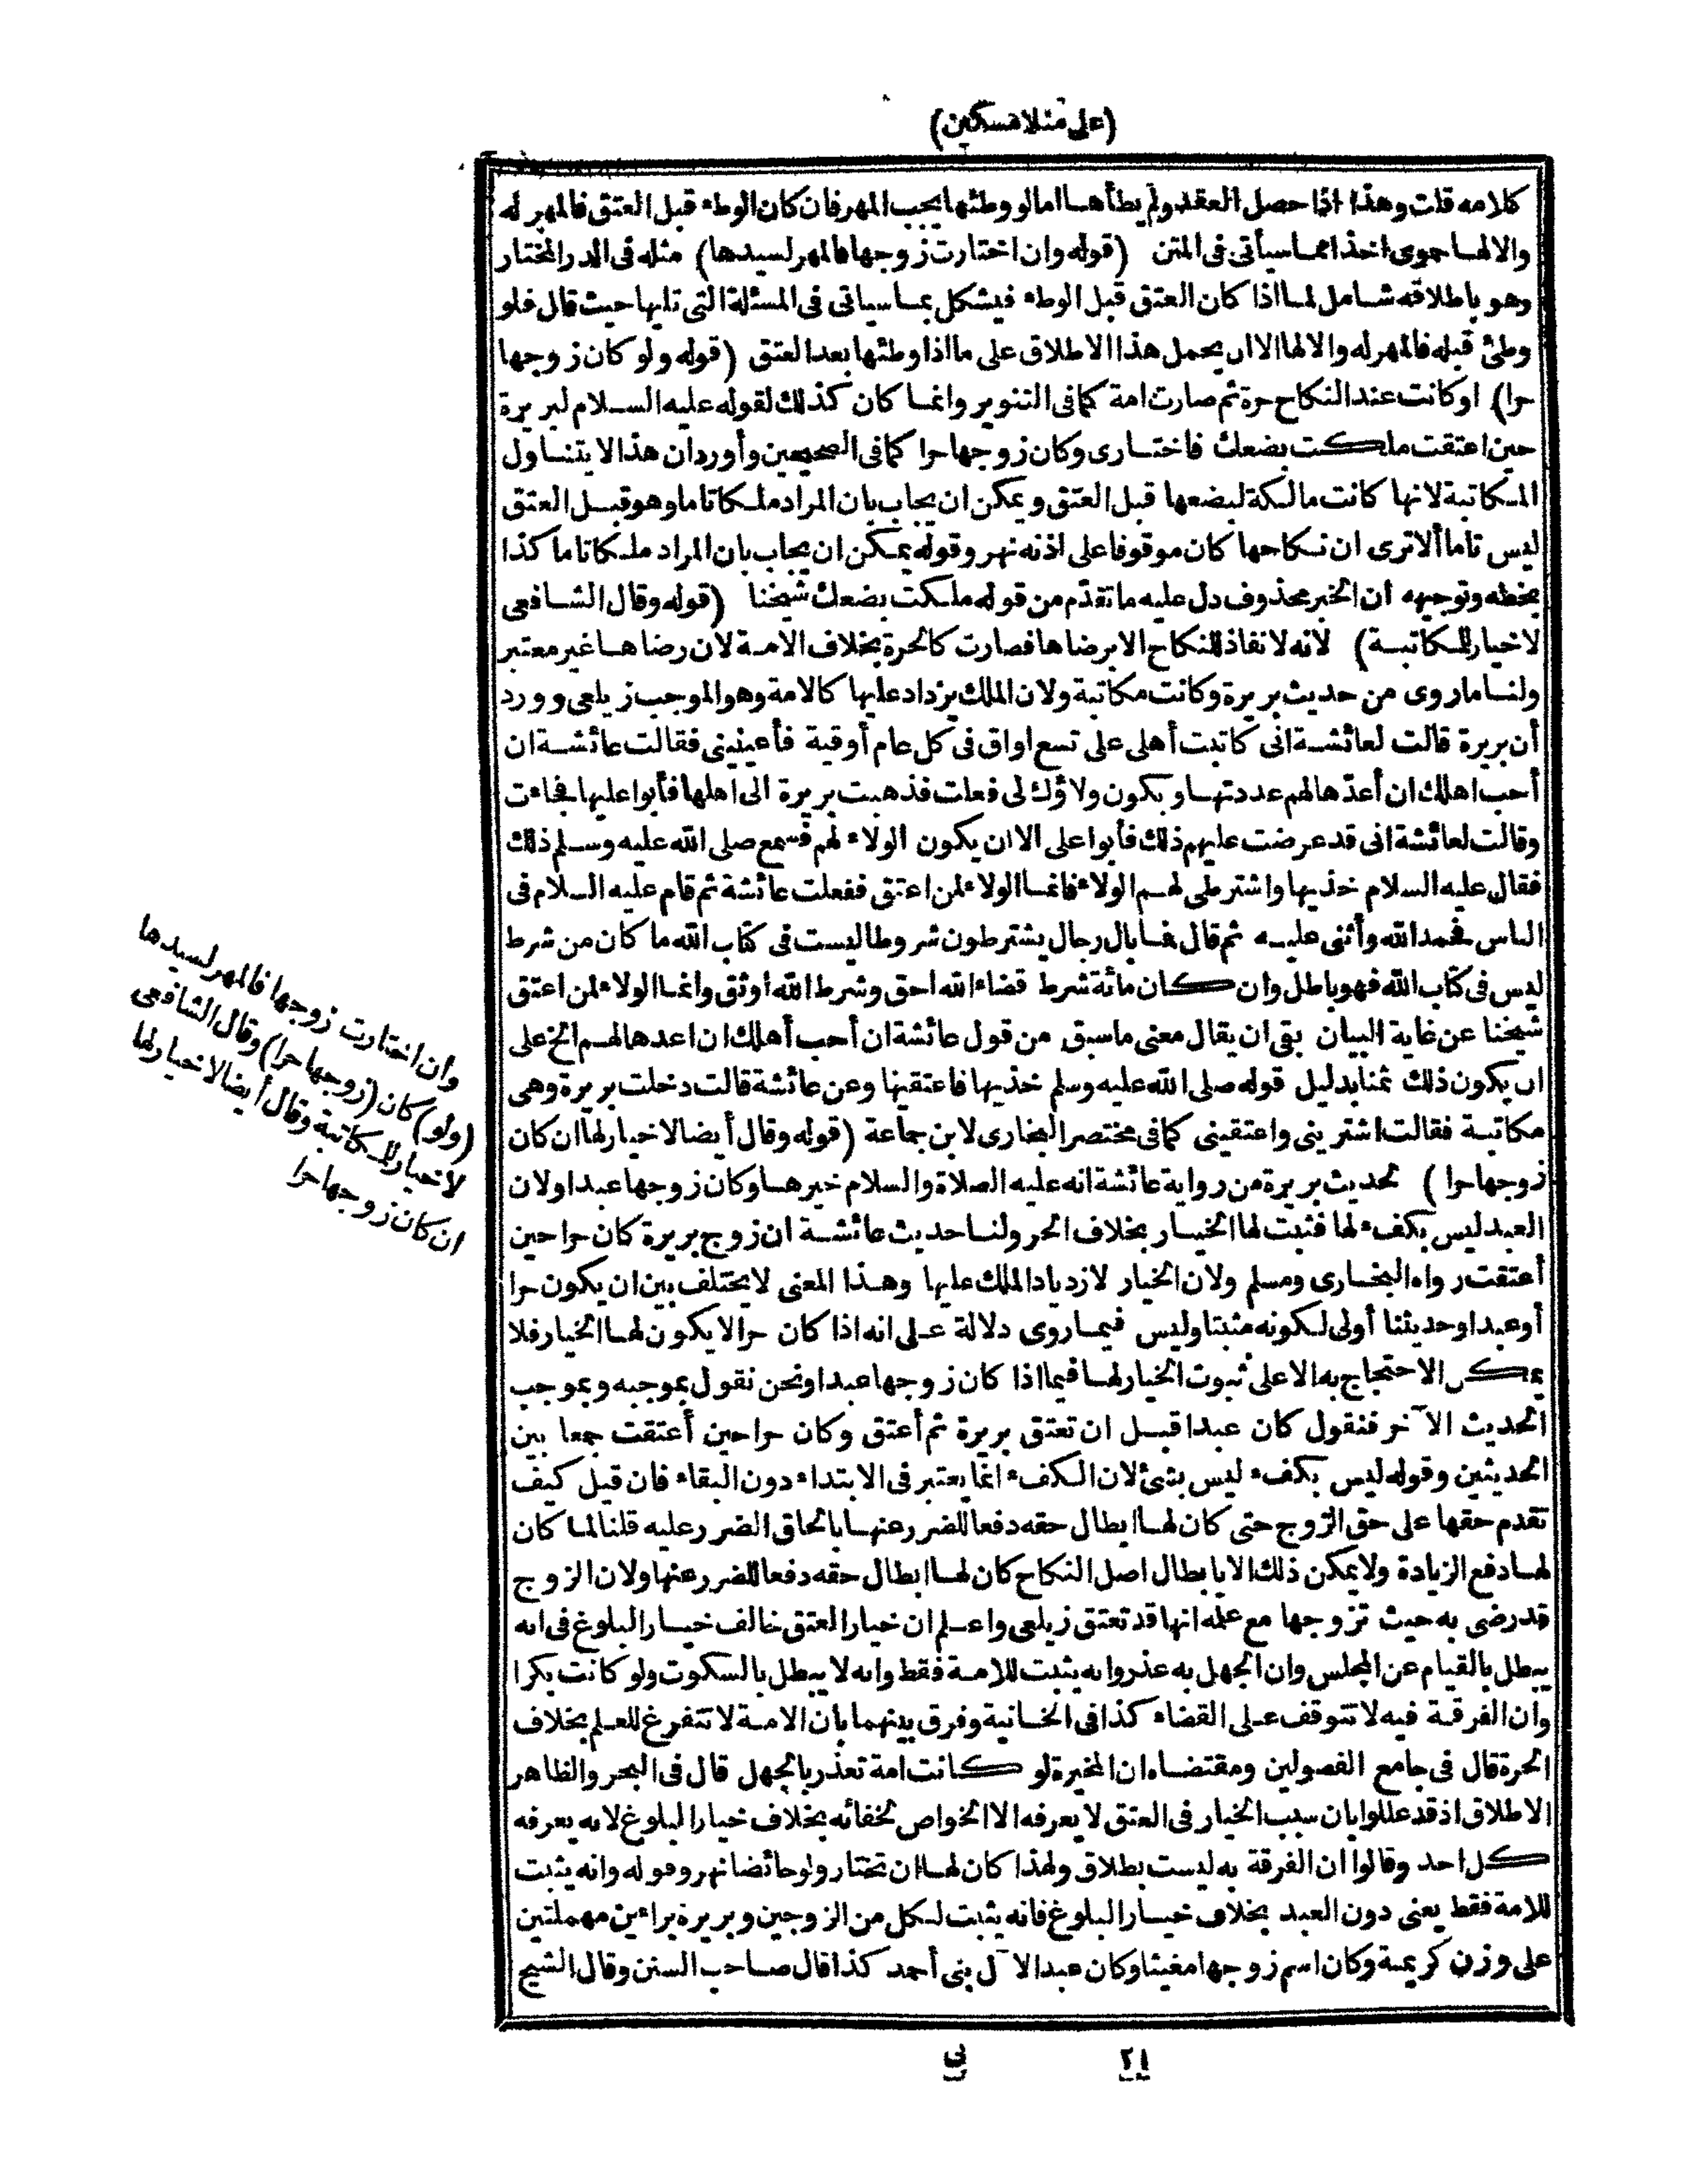 (على منلا مسكين)
كلامه قلت وهذا اذا حصل العقد ولم يطأها اما لو وطئها يجب المهر فان كان الوطء قبل العتق فالمهر له
والا لها جوى اخذا مما سيأتى فى المتن (قوله وان اختارت زوجها فالمهر لسيدها) مثله فى الدر المختار
وهو باطلاقه شامل لما اذا كان العتق قبل الوطء فيشكل بما سياتى فى المسئلة التى تليها حيث قال فلو
وطئ قبله فالمهر له والا لها الا ان يحمل هذا الاطلاق على ما اذا وطئها بعد العتق (قوله ولو كان زوجها
حرا) او كانت عند النكاح حرة ثم صارت امة كما فى التنوير وانما كان كذلك لقوله عليه السلام لبريرة
حين اعتقت ملكت بضعك فاختارى وكان زوجها حرا كما فى الصحيحين وأورد ان هذا لا يتناول
المكاتبة لانها كانت مالكة لبضعها قبل العتق ويمكن ان يجاب بان المراد ملكا تاما وهو قبل العتق
ليس تاما ألا ترى ان نكاحها كان موقوفا على اذنه نهر وقوله يمكن ان يجاب بان المراد ملكا تاما كذا
بخطه وتوجيهه ان الخبر محذوف دل عليه ما تقدم من قوله ملكت بضعك شيخنا (قوله وقال الشافعى
لا خيار للمكاتبة) لانه لا نفاذ للنكاح الا برضاها فصارت كالحرة بخلاف الامة لان رضاها غير معتبر
ولنا ما روى من حديث بريرة وكانت مكاتبة ولان الملك يزداد عليها كالامة وهو الموجب زيلعى وورد
أن بريرة قالت لعائشة انى كاتبت أهلى على تسع اواق فى كل عام أوقية فأعينينى فقالت عائشة ان
أحب اهلك ان أعدها لهم عددتها ويكون ولاؤك لى فعلت فذهبت بريرة الى اهلها فأبوا عليها فجاءت
وقالت لعائشة انى قد عرضت عليهم ذلك فأبوا على الا ان يكون الولاء لهم فسمع صلى الله عليه وسلم ذلك
فقال عليه السلام خذيها واشترطى لهم الولاء فانما الولاء لمن اعتق ففعلت عائشة ثم قام عليه السلام فى
الناس فحمد الله وأثنى عليه ثم قال فما بال رجال يشترطون شروطا ليست فى كتاب الله ما كان من شرط
ليس فى كتاب الله فهو باطل وان كان مائة شرط قضاء الله احق وشرط الله اوثق وانما الولاء لمن اعتق
شيخنا عن غاية البيان بقى ان يقال معنى ما سبق من قول عائشة ان أحب أهلك ان اعدها لهم الخ على
ان يكون ذلك ثمنا بدليل قوله صلى الله عليه وسلم خذيها فاعتقيها وعن عائشة قالت دخلت بريرة وهى
مكاتبة فقالت اشترينى واعتقينى كما فى مختصر البخارى لابن جماعة (قوله وقال أيضا لا خيار لها ان كان
زوجها حرا) لحديث بريرة من رواية عائشة انه عليه الصلاة والسلام خيرها وكان زوجها عبدا ولان
العبد ليس بكفء لها فثبت لها الخيار بخلاف الحر ولنا حديث عائشة ان زوج بريرة كان حرا حين
أعتقت رواه البخارى ومسلم ولان الخيار لازدياد الملك عليها وهذا المعنى لا يختلف بين ان يكون حرا
أو عبدا وحديثنا أولى لكونه مثبتا وليس فيما روى دلالة على انه اذا كان حرا لا يكون لها الخيار فلا
يمكن الاحتجاج به الا على ثبوت الخيار لها فيما اذا كان زوجها عبدا ونحن نقول بموجبه وبموجب
الحديث الآخر فنقول كان عبدا قبل ان تعتق بريرة ثم أعتق وكان حرا حين أعتقت جمعا بين
الحديثين وقوله ليس بكفء ليس بشئ لان الكفء انما يعتبر فى الابتداء دون البقاء فان قيل كيف
تقدم حقها على حق الزوج حتى كان لها ابطال حقه دفعا للضرر عنها بالحاق الضرر عليه قلنا لما كان
لها دفع الزيادة ولا يمكن ذلك الا بابطال اصل النكاح كان لها ابطال حقه دفعا للضرر عنها ولان الزوج
قد رضى به حيث تزوجها مع علمه انها قد تعتق زيلعى واعلم ان خيار العتق خالف خيار البلوغ فى انه
يبطل بالقيام عن المجلس وان الجهل به عذر وانه يثبت للامة فقط وانه لا يبطل بالسكوت ولو كانت بكرا
وان الفرقة فيه لا تتوقف على القضاء كذا فى الخانية وفرق بينهما بان الامة لا تتفرغ للعلم بخلاف
الحرة قال فى جامع الفصولين ومقتضاه ان المخيرة لو كانت امة تعذر بالجهل قال فى البحر والظاهر
الاطلاق اذ قد عللوا بان سبب الخيار فى العتق لا يعرفه الا الخواص لخفائه بخلاف خيار البلوغ لانه يعرفه
كل احد وقالوا ان الفرقة به ليست بطلاق ولهذا كان لها ان تختار ولو حائضا نهر وقوله وانه يثبت
للامة فقط يعنى دون العبد بخلاف خيار البلوغ فانه يثبت لكل من الزوجين وبريرة براءين مهملتين
على وزن كريمة وكان اسم زوجها مغيثا وكان عبدا لآل بنى أحمد كذا قال صاحب السنن وقال الشيخ
وان اختارت زوجها فالمهر لسيدها
(ولو) كان (زوجها حرا) وقال الشافعى
لا خيار للمكاتبة وقال أيضا لا خيار لها
ان كان زوجها حرا
٢١ نى